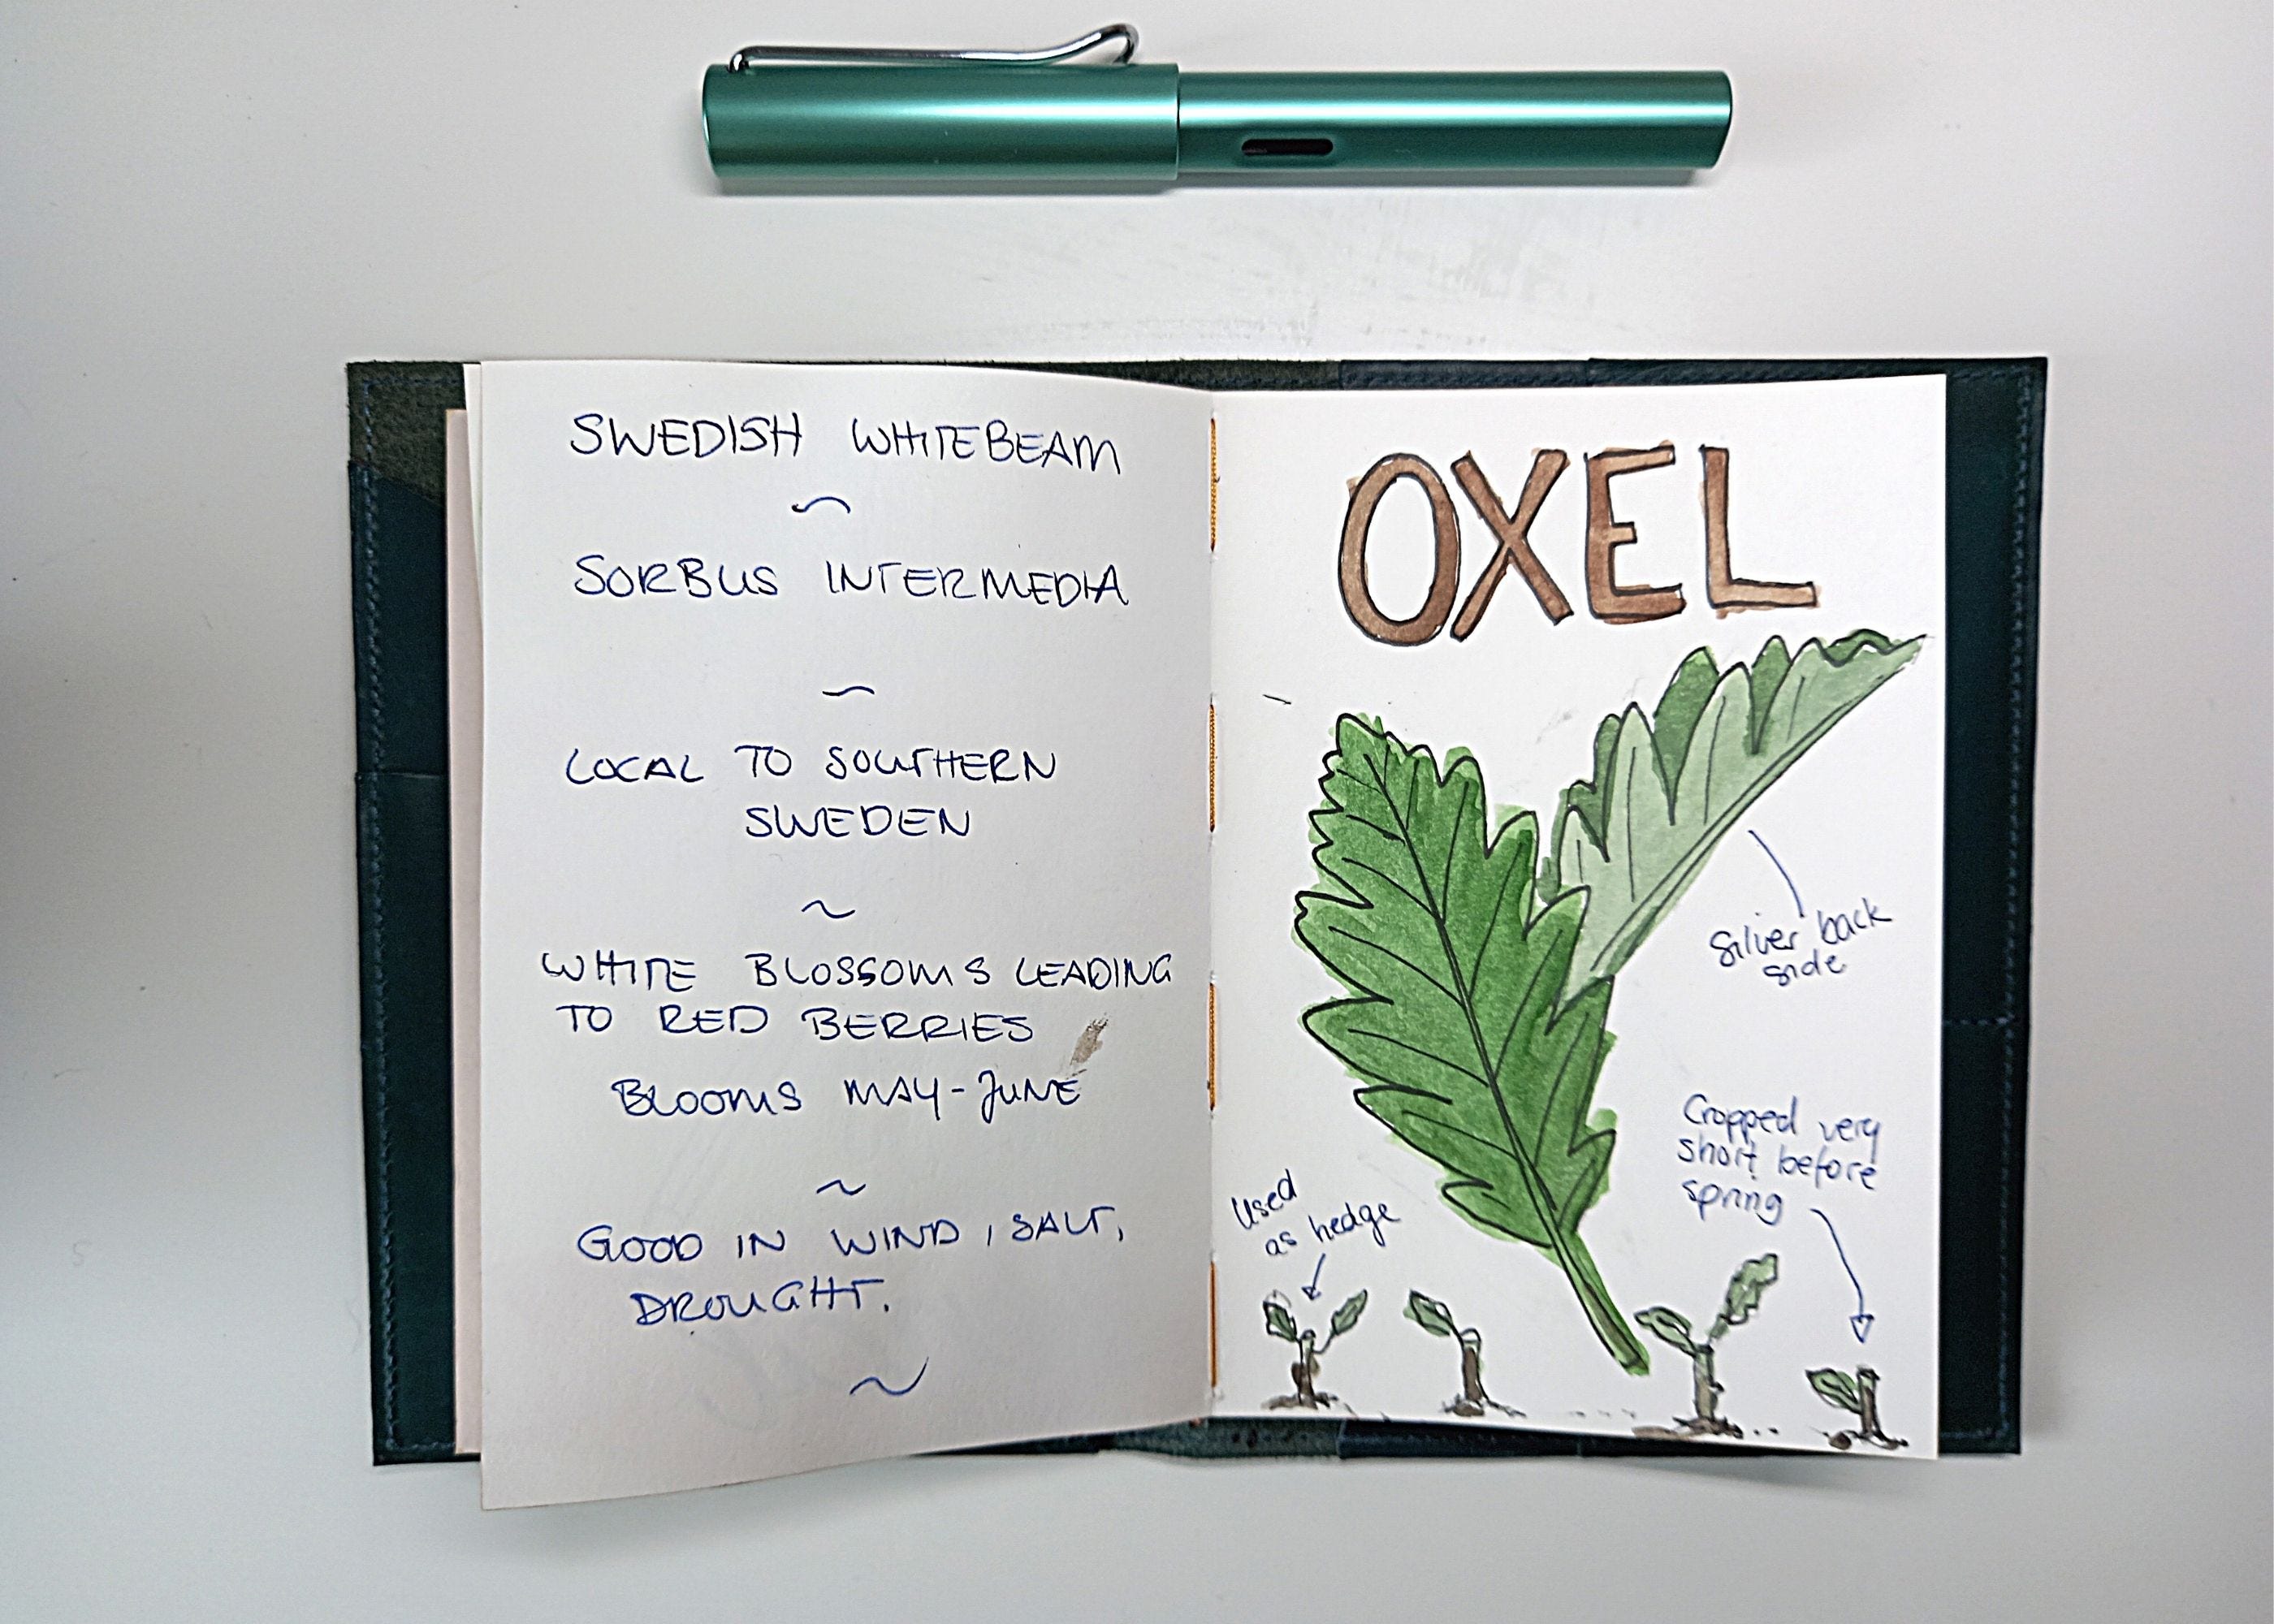 SWEDISH WHITEBEAM
~
SORBUS INTERMEDIA
~
LOCAL TO SOUTHERN
SWEDEN
~
WHITE BLOSSOMS LEADING
TO RED BERRIES
BLOOMS MAY-JUNE
~
GOOD IN WIND, SALT,
DROUGHT.
~
OXEL
Silver back
side
Cropped very
short before
spring
Used
as hedge